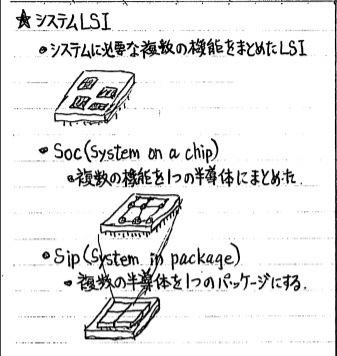 ★ システムLSI
・システムに必要な複数の機能をまとめたLSI
・Soc(System on a chip)
・複数の機能を1つの半導体にまとめた.
・Sip(System in package)
・複数の半導体を1つのパッケージにする.